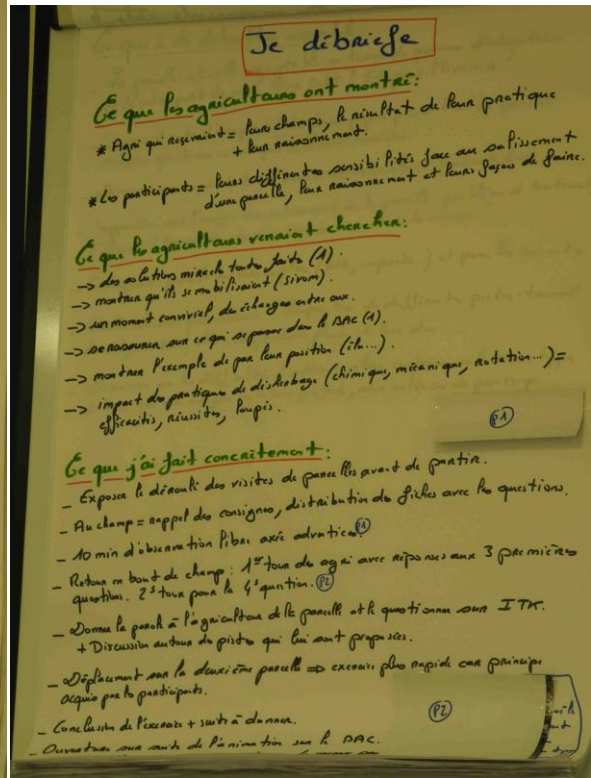 Je débriefe
Ce que les agriculteurs ont montré:
* Agri qui recevaient = leurs champs, le résultat de leur pratique
+ leur raisonnement.
* Les participants = leurs différentes sensibilités face au salissement
d'une parcelle, leur raisonnement et leurs façons de faire.
Ce que les agriculteurs venaient chercher:
-> des solutions miracle toutes faites (1).
-> montrer qu'ils se mobilisaient (Sivom).
-> un moment convivial, des échanges entre eux.
-> se rassurer sur ce qui se passe dans le BAC (1).
-> montrer l'exemple de par leur position (élu...).
-> impact des pratiques de désherbage (chimique, mécanique, rotation...) =
efficacités, réussites, loupés.
P1
Ce que j'ai fait concrètement:
- Exposer le déroulé des visites de parcelles avant de partir.
- Au champ = rappel des consignes, distribution des fiches avec les questions.
- 10 min d'observation libre axée adventices P1
- Retour en bout de champ: 1er tour des agri avec réponses aux 3 premières
questions. 2e tour pour la 4e question. P2
- Donner la parole à l'agriculteur de la parcelle et le questionner sur ITK.
+ Discussion autour des pistes qui lui sont proposées.
- Déplacement sur la deuxième parcelle => exercice plus rapide car principe
acquis par les participants.
- Conclusion de l'exercice + suite à donner.
P2
- Ouverture sur suite de l'animation sur le BAC.